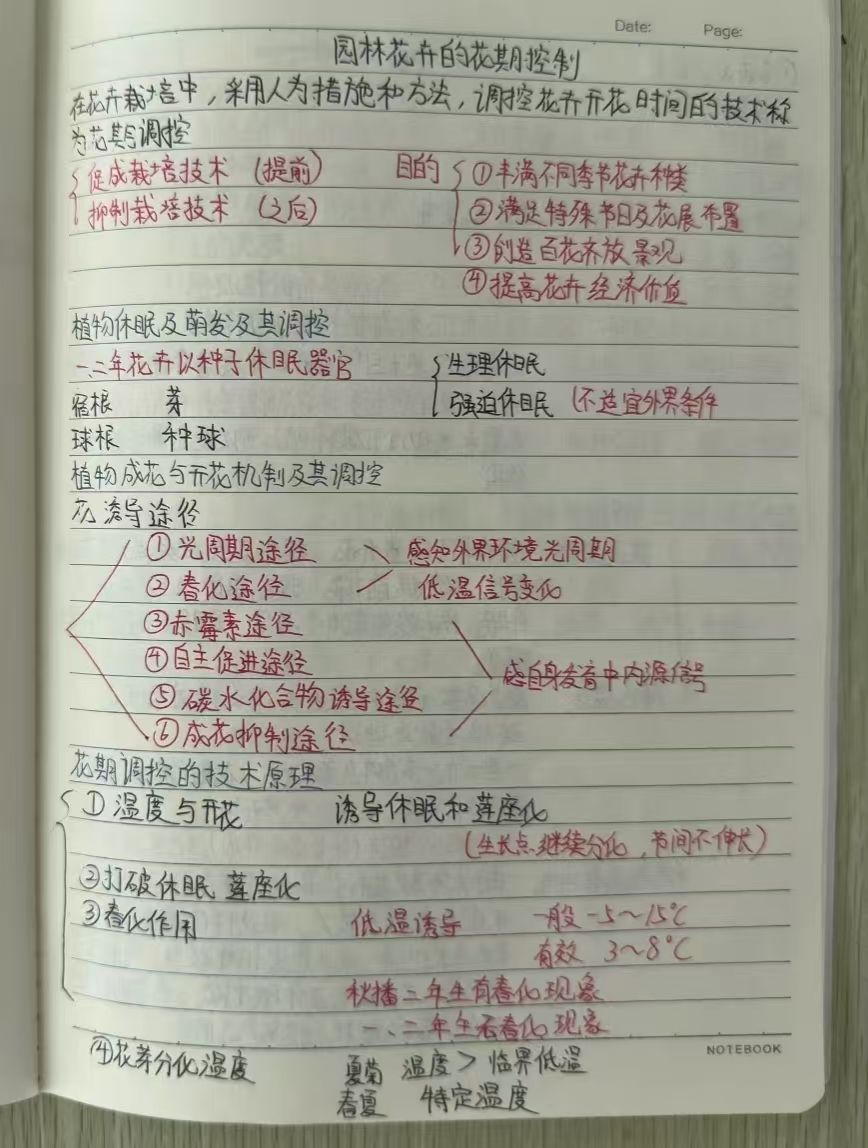 Date: Page:
园林花卉的花期控制
在花卉栽培中，采用人为措施和方法，调控花卉开花时间的技术称
为花期调控
促成栽培技术 (提前) 目的 ①丰满不同季节花卉种类
抑制栽培技术 (之后) ②满足特殊节日及花展布置
③创造百花齐放景观
④提高花卉经济价值
植物休眠及萌发及其调控
一、二年花卉以种子休眠器官 生理休眠
宿根 芽 强迫休眠 (不适宜外界条件
球根 种球
植物成花与开花机制及其调控
花诱导途径
①光周期途径 感知外界环境光周期
②春化途径 低温信号变化
③赤霉素途径
④自主促进途径
感自身发育中内源信号
⑤碳水化合物诱导途径
⑥成花抑制途径
花期调控的技术原理
①温度与开花 诱导休眠和莲座化
(生长点继续分化，节间不伸长)
②打破休眠 莲座化
③春化作用 低温诱导 一般 -5～15℃
有效 3～8℃
秋播二年生有春化现象
一、二年生无春化现象
NOTEBOOK
④花芽分化温度 夏菊 温度＞临界低温
春夏 特定温度